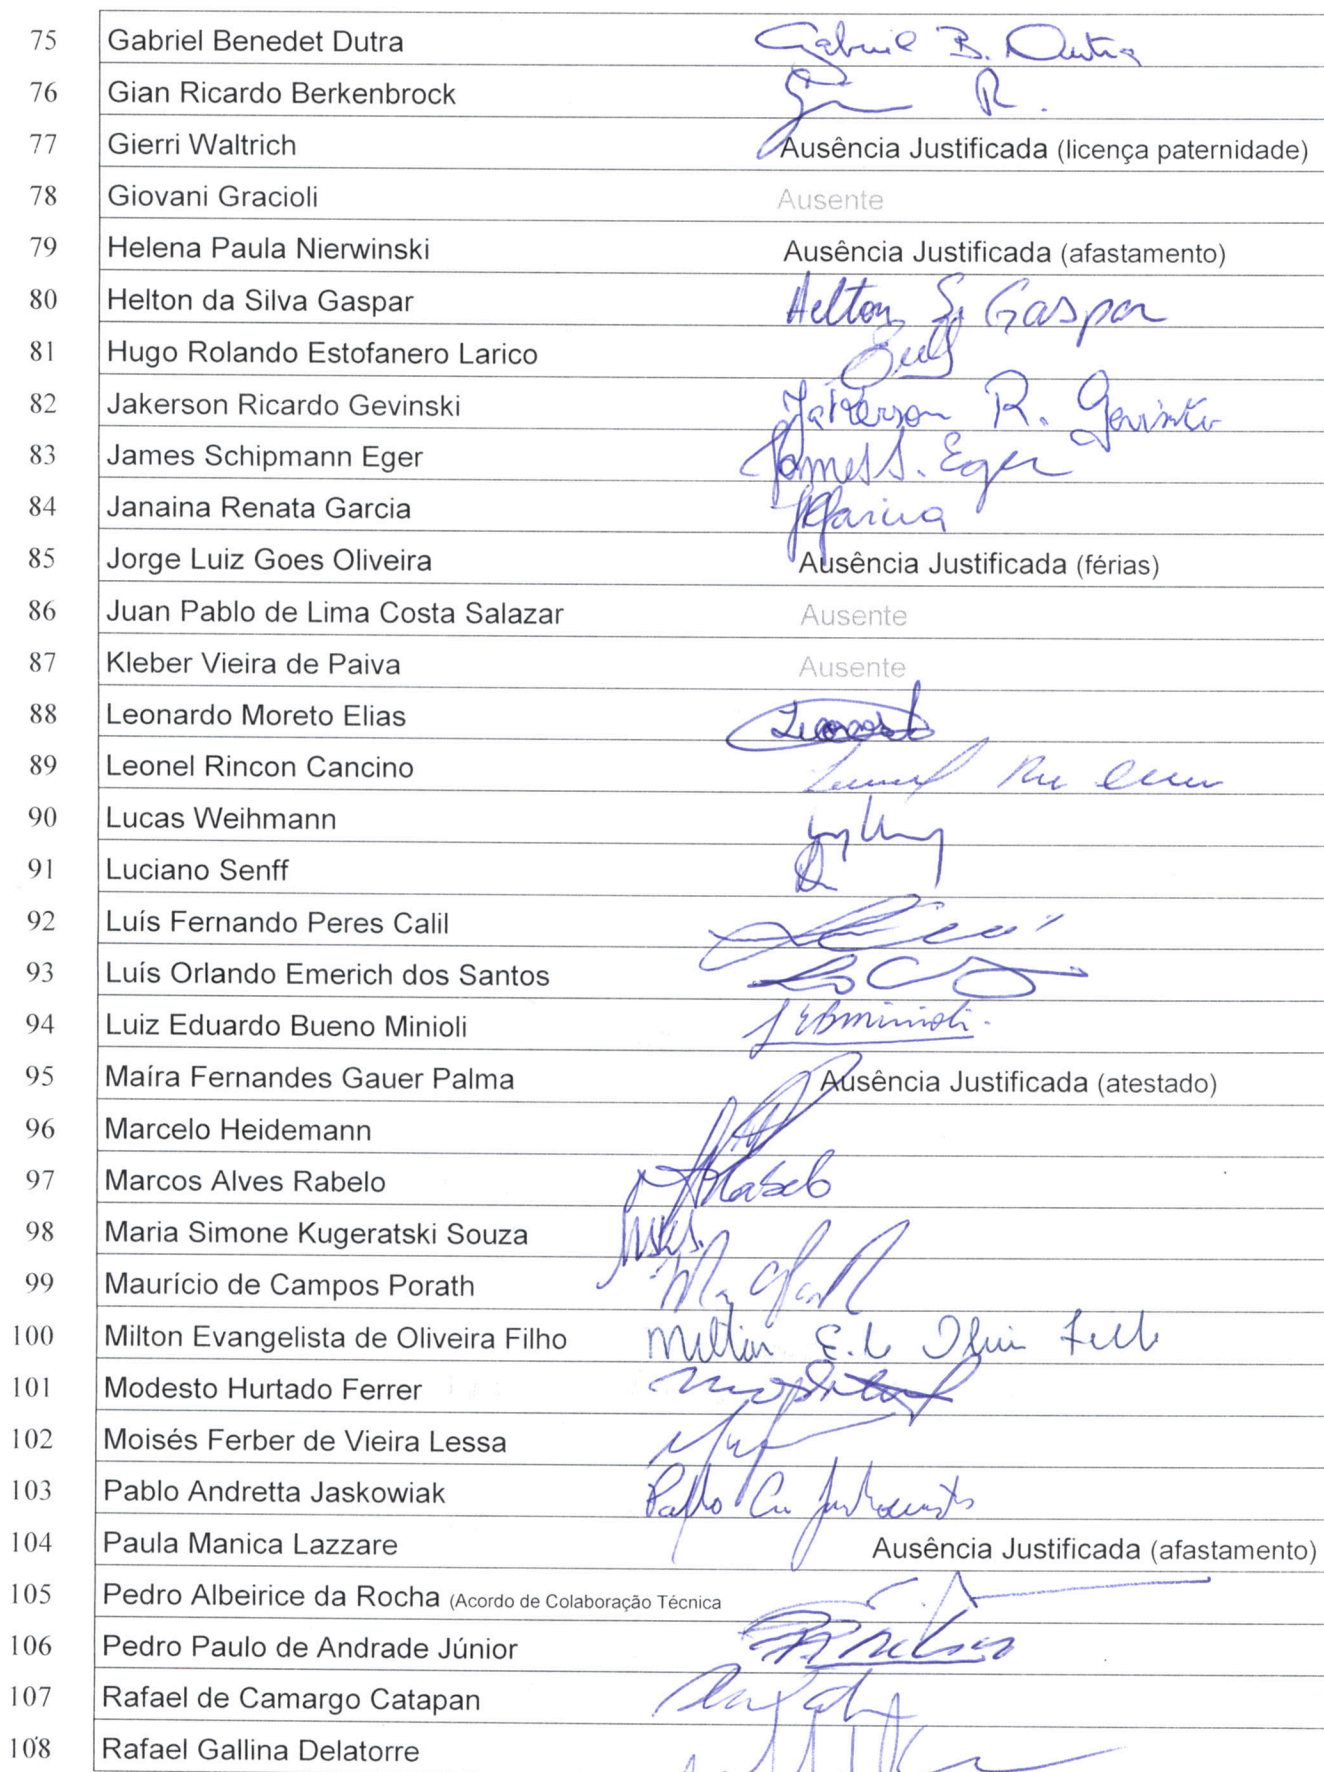 75 Gabriel Benedet Dutra Gabriel B. Dutra
76 Gian Ricardo Berkenbrock R.
77 Gierri Waltrich Ausência Justificada (licença paternidade)
78 Giovani Gracioli Ausente
79 Helena Paula Nierwinski Ausência Justificada (afastamento)
80 Helton da Silva Gaspar Helton S. Gaspar
81 Hugo Rolando Estofanero Larico
82 Jakerson Ricardo Gevinski Jakerson R. Gevinski
83 James Schipmann Eger James S. Eger
84 Janaina Renata Garcia JRGarcia
85 Jorge Luiz Goes Oliveira Ausência Justificada (férias)
86 Juan Pablo de Lima Costa Salazar Ausente
87 Kleber Vieira de Paiva Ausente
88 Leonardo Moreto Elias Leonardo
89 Leonel Rincon Cancino
90 Lucas Weihmann
91 Luciano Senff
92 Luís Fernando Peres Calil
93 Luís Orlando Emerich dos Santos
94 Luiz Eduardo Bueno Minioli LEBminioli.
95 Maíra Fernandes Gauer Palma Ausência Justificada (atestado)
96 Marcelo Heidemann
97 Marcos Alves Rabelo Rabelo
98 Maria Simone Kugeratski Souza MSKS.
99 Maurício de Campos Porath
100 Milton Evangelista de Oliveira Filho Milton E. de Oliveira Filho
101 Modesto Hurtado Ferrer
102 Moisés Ferber de Vieira Lessa
103 Pablo Andretta Jaskowiak Pablo
104 Paula Manica Lazzare Ausência Justificada (afastamento)
105 Pedro Albeirice da Rocha (Acordo de Colaboração Técnica
106 Pedro Paulo de Andrade Júnior
107 Rafael de Camargo Catapan
108 Rafael Gallina Delatorre